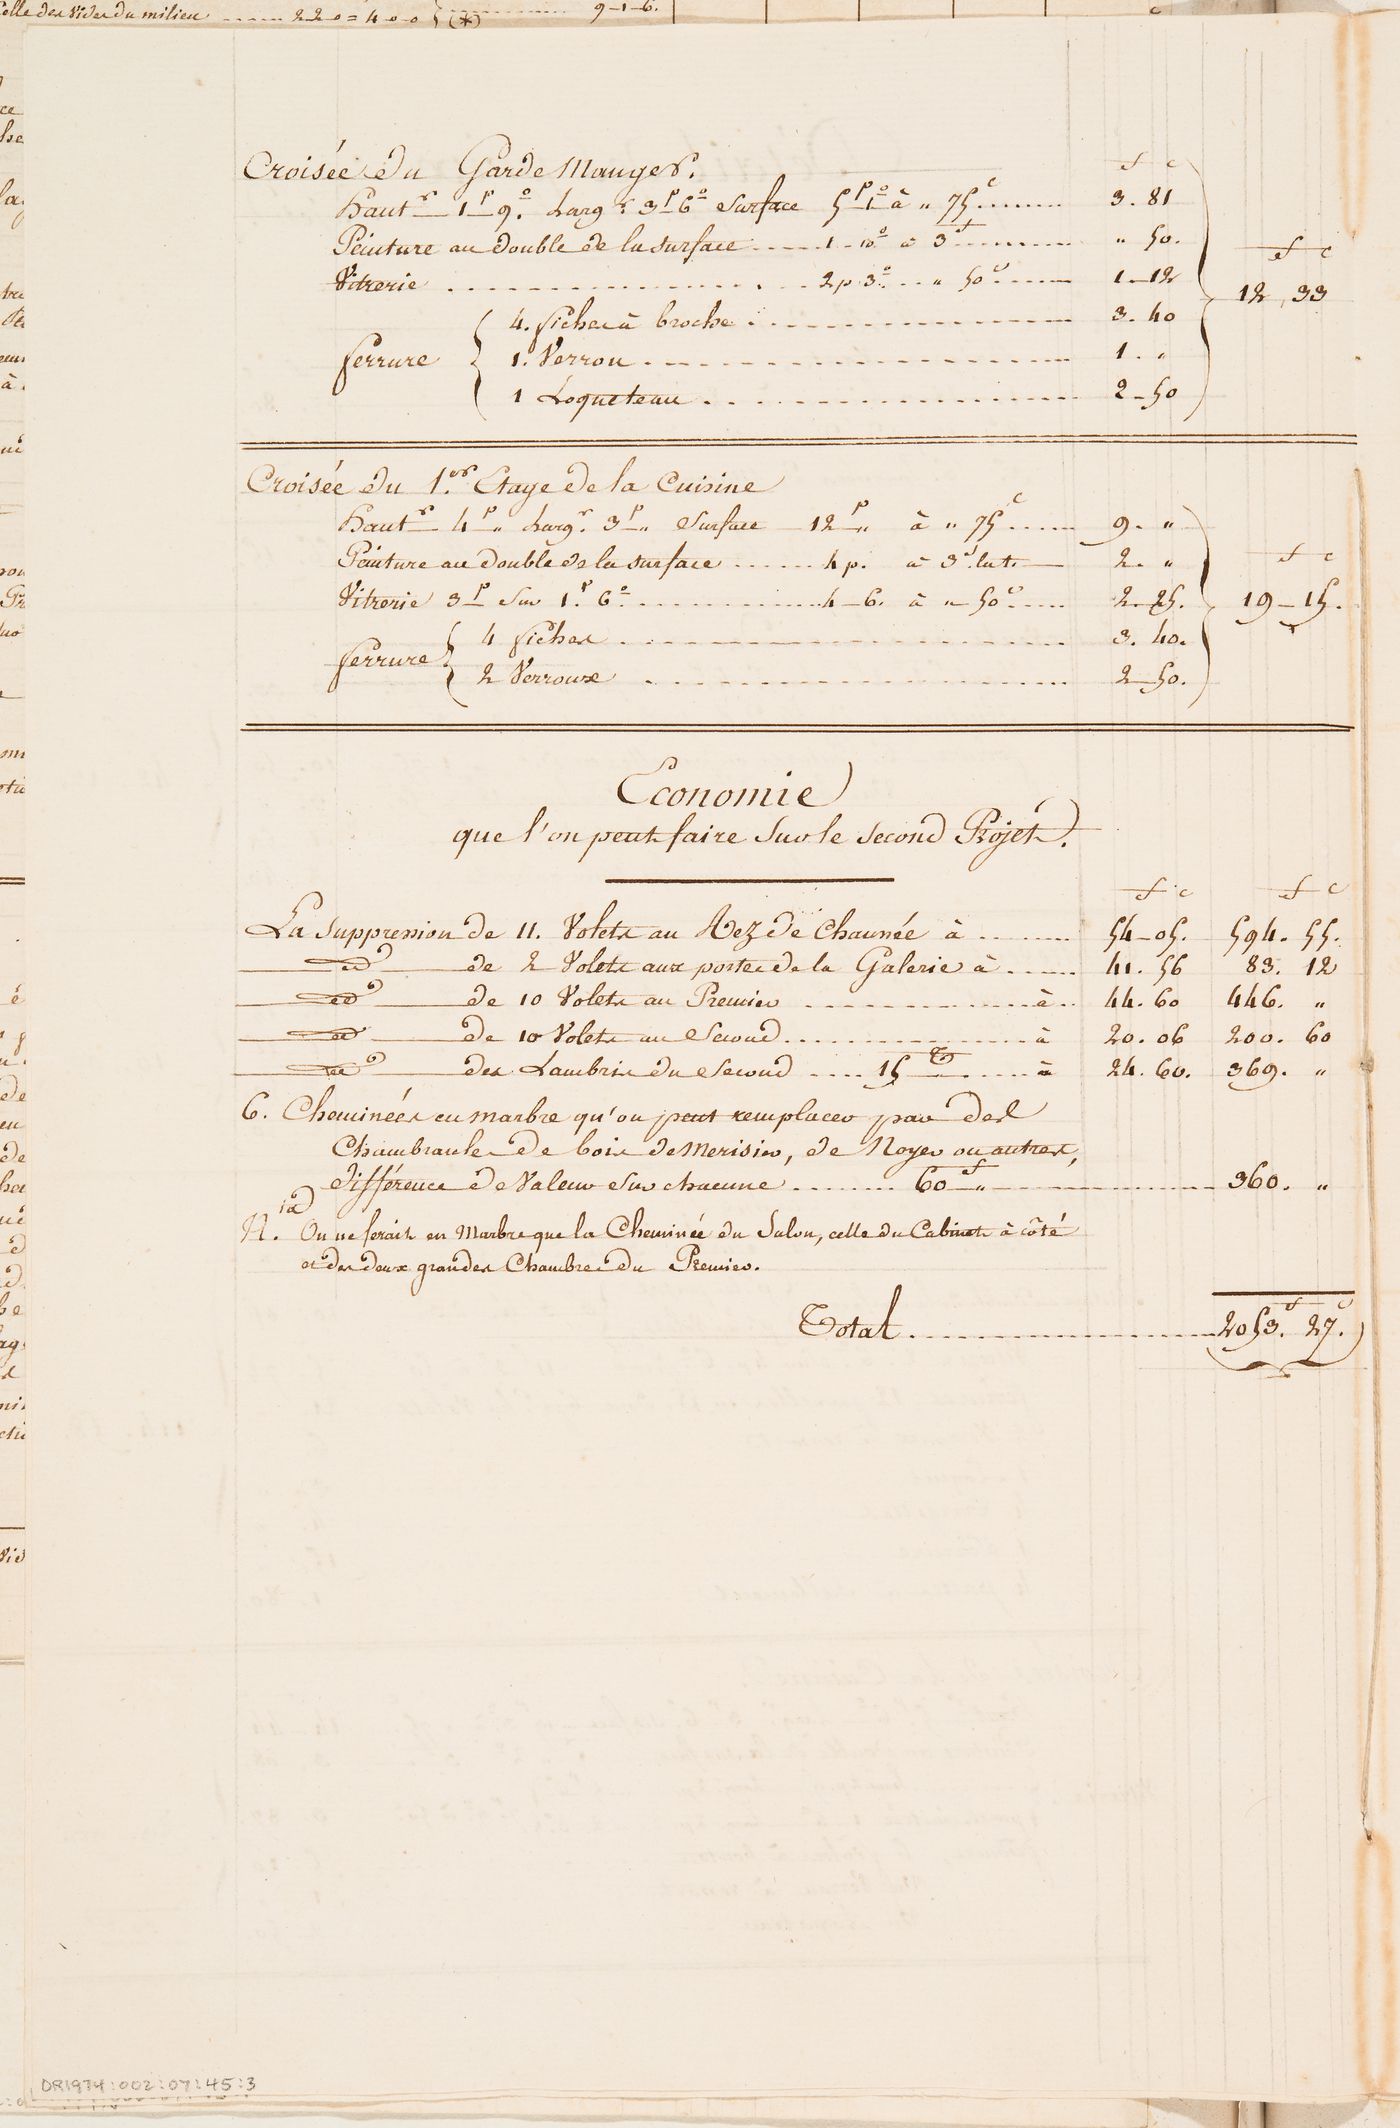 Colle des Vides du milieu ...... 2 2 0 = 4 0 0 } (*) ............ 9-1-6.
Croisée du Garde Manger.
f c
Haut.r 1p 9o. Larg.r 3p 6o Surface 5p 1o à " 75c ........ 3. 81
Peinture au double de la surface ..... 1-10o à 3f ........ " 50.
Vitrerie ................ 2p 3o .. " 50c ........ 1-12
Ferrure { 4. fiches à broche ................ 3. 40
1. Verrou ................ 1. "
1 Loqueteau ................ 2-50
f c
12, 33
Croisée du 1.er Etage de la Cuisine
Haut.r 4p " Larg.r 3p " Surface 12p " à " 75c ...... 9. "
Peinture au double de la surface ...... 4 p. à 3f. la t. 2. "
Vitrerie 3p Sur 1.p 6o ............ 4-6. à " 50c ..... 2-25.
Ferrure { 4 fiches ................ 3. 40.
2 Verroux ................ 2-50.
f c
19-15.
Economie
que l'on peut faire Sur le Second Projet.
f c f c
La Suppression de 11. Volets au Rez de Chaussée à ........ 54-05. 594. 55.
id de 2 Volets aux portes de la Galerie à ...... 41. 56 83. 12
id de 10 Volets au Premier ............ à .. 44. 60 446. "
id de 10 Volets au Second ............ à 20. 06 200. 60
id des Lambris du Second .... 15 T ...... à 24. 60. 369. "
6. Cheminées en marbre qu'on peut remplacer par des
Chambranles de bois de Merisier, de Noyer ou autres,
différence de Valeur Sur chacune ........ 60f " ........ 360. "
N.ta. On ne ferait en Marbre que la Cheminée du Salon, celle du Cabinet à côté
et des deux grandes Chambres du Premier.
Total ................ 2053.f 27.c
DR1974:002:07:45:3